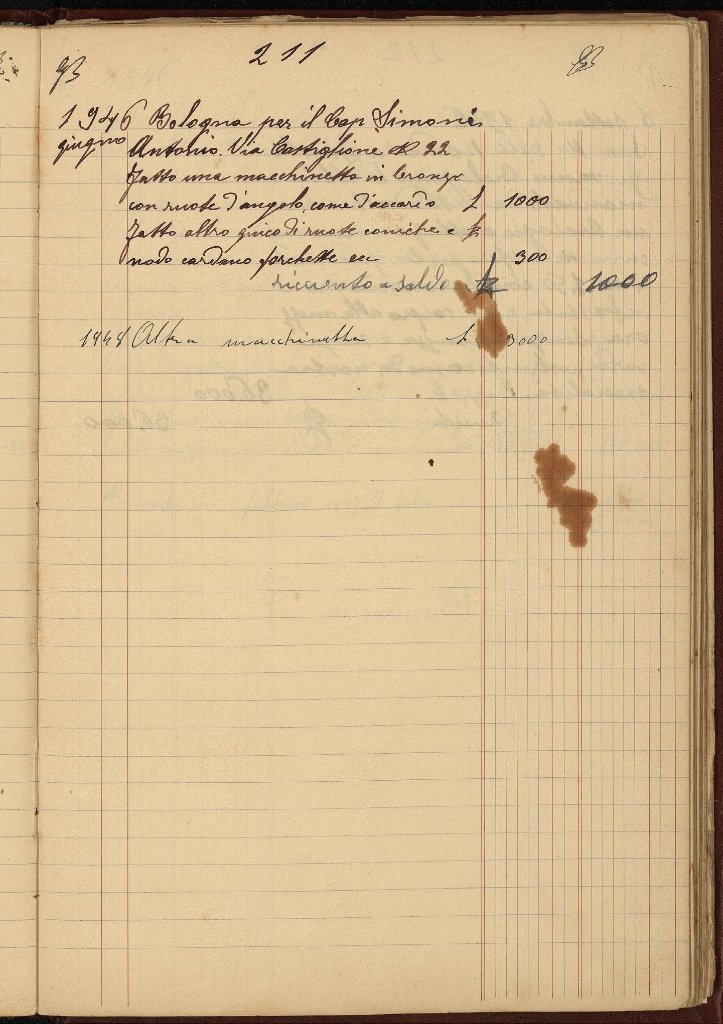 93 211 93
1946 Bologna per il Cap Simoni
giugno Antonio. Via Castiglione N 22
Fatto una macchinetta in bronzo
con ruote d'angolo, come d'accordo £ 1000
Fatto altro gioco di ruote coniche e £
nodo cardano forchette ecc 300
ricevuto a saldo £ 1000
1948 Altra macchinetta £ 3000